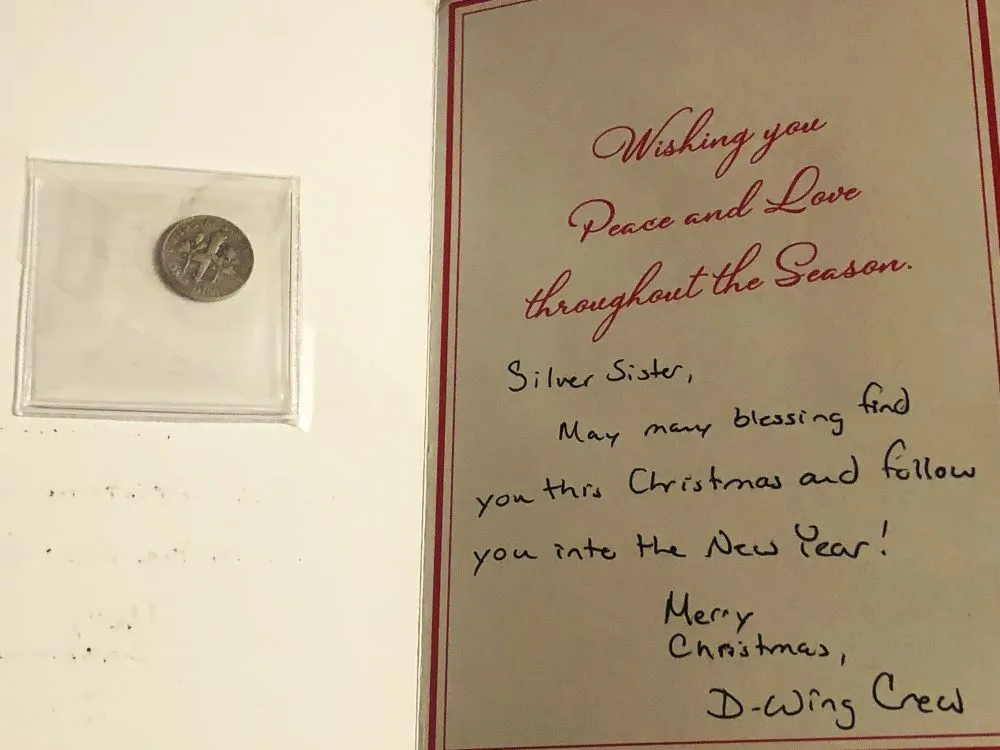 Wishing you
Peace and Love
throughout the Season.
Silver Sister,
May many blessing find
you this Christmas and follow
you into the New Year!
Merry
Christmas,
D-Wing Crew